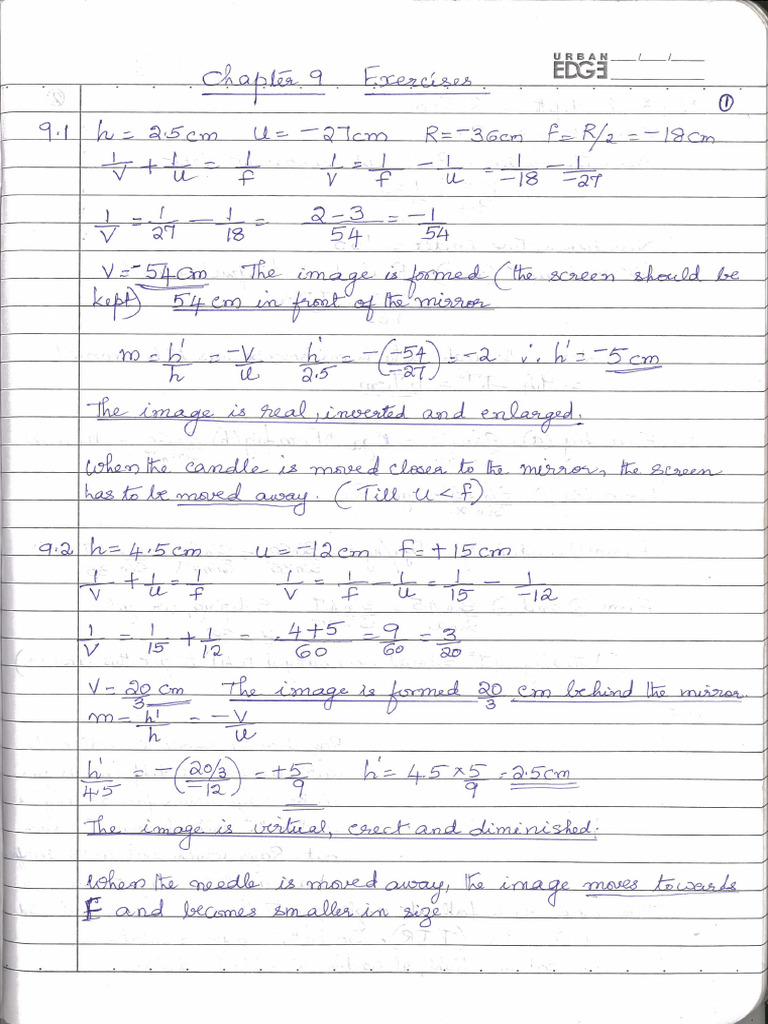 URBAN
EDGE
Chapter 9 Exercises
①
9.1 h = 2.5cm u = -27cm R = -36cm f = R/2 = -18cm
1/v + 1/u = 1/f 1/v = 1/f - 1/u = 1/-18 - 1/-27
1/v = 1/27 - 1/18 = 2-3/54 = -1/54
v = -54cm The image is formed (the screen should be
kept) 54 cm in front of the mirror
m = h'/h = -v/u h'/2.5 = -(-54/-27) = -2 ∴ h' = -5cm
The image is real, inverted and enlarged.
When the candle is moved closer to the mirror, the screen
has to be moved away. (Till u < f)
9.2 h = 4.5cm u = -12cm f = +15cm
1/v + 1/u = 1/f 1/v = 1/f - 1/u = 1/15 - 1/-12
1/v = 1/15 + 1/12 = 4+5/60 = 9/60 = 3/20
v = 20/3 cm The image is formed 20/3 cm behind the mirror.
m = h'/h = -v/u
h'/4.5 = -(20/3/-12) = +5/9 h' = 4.5 × 5/9 = 2.5cm
The image is virtual, erect and diminished.
When the needle is moved away, the image moves towards
F and becomes smaller in size